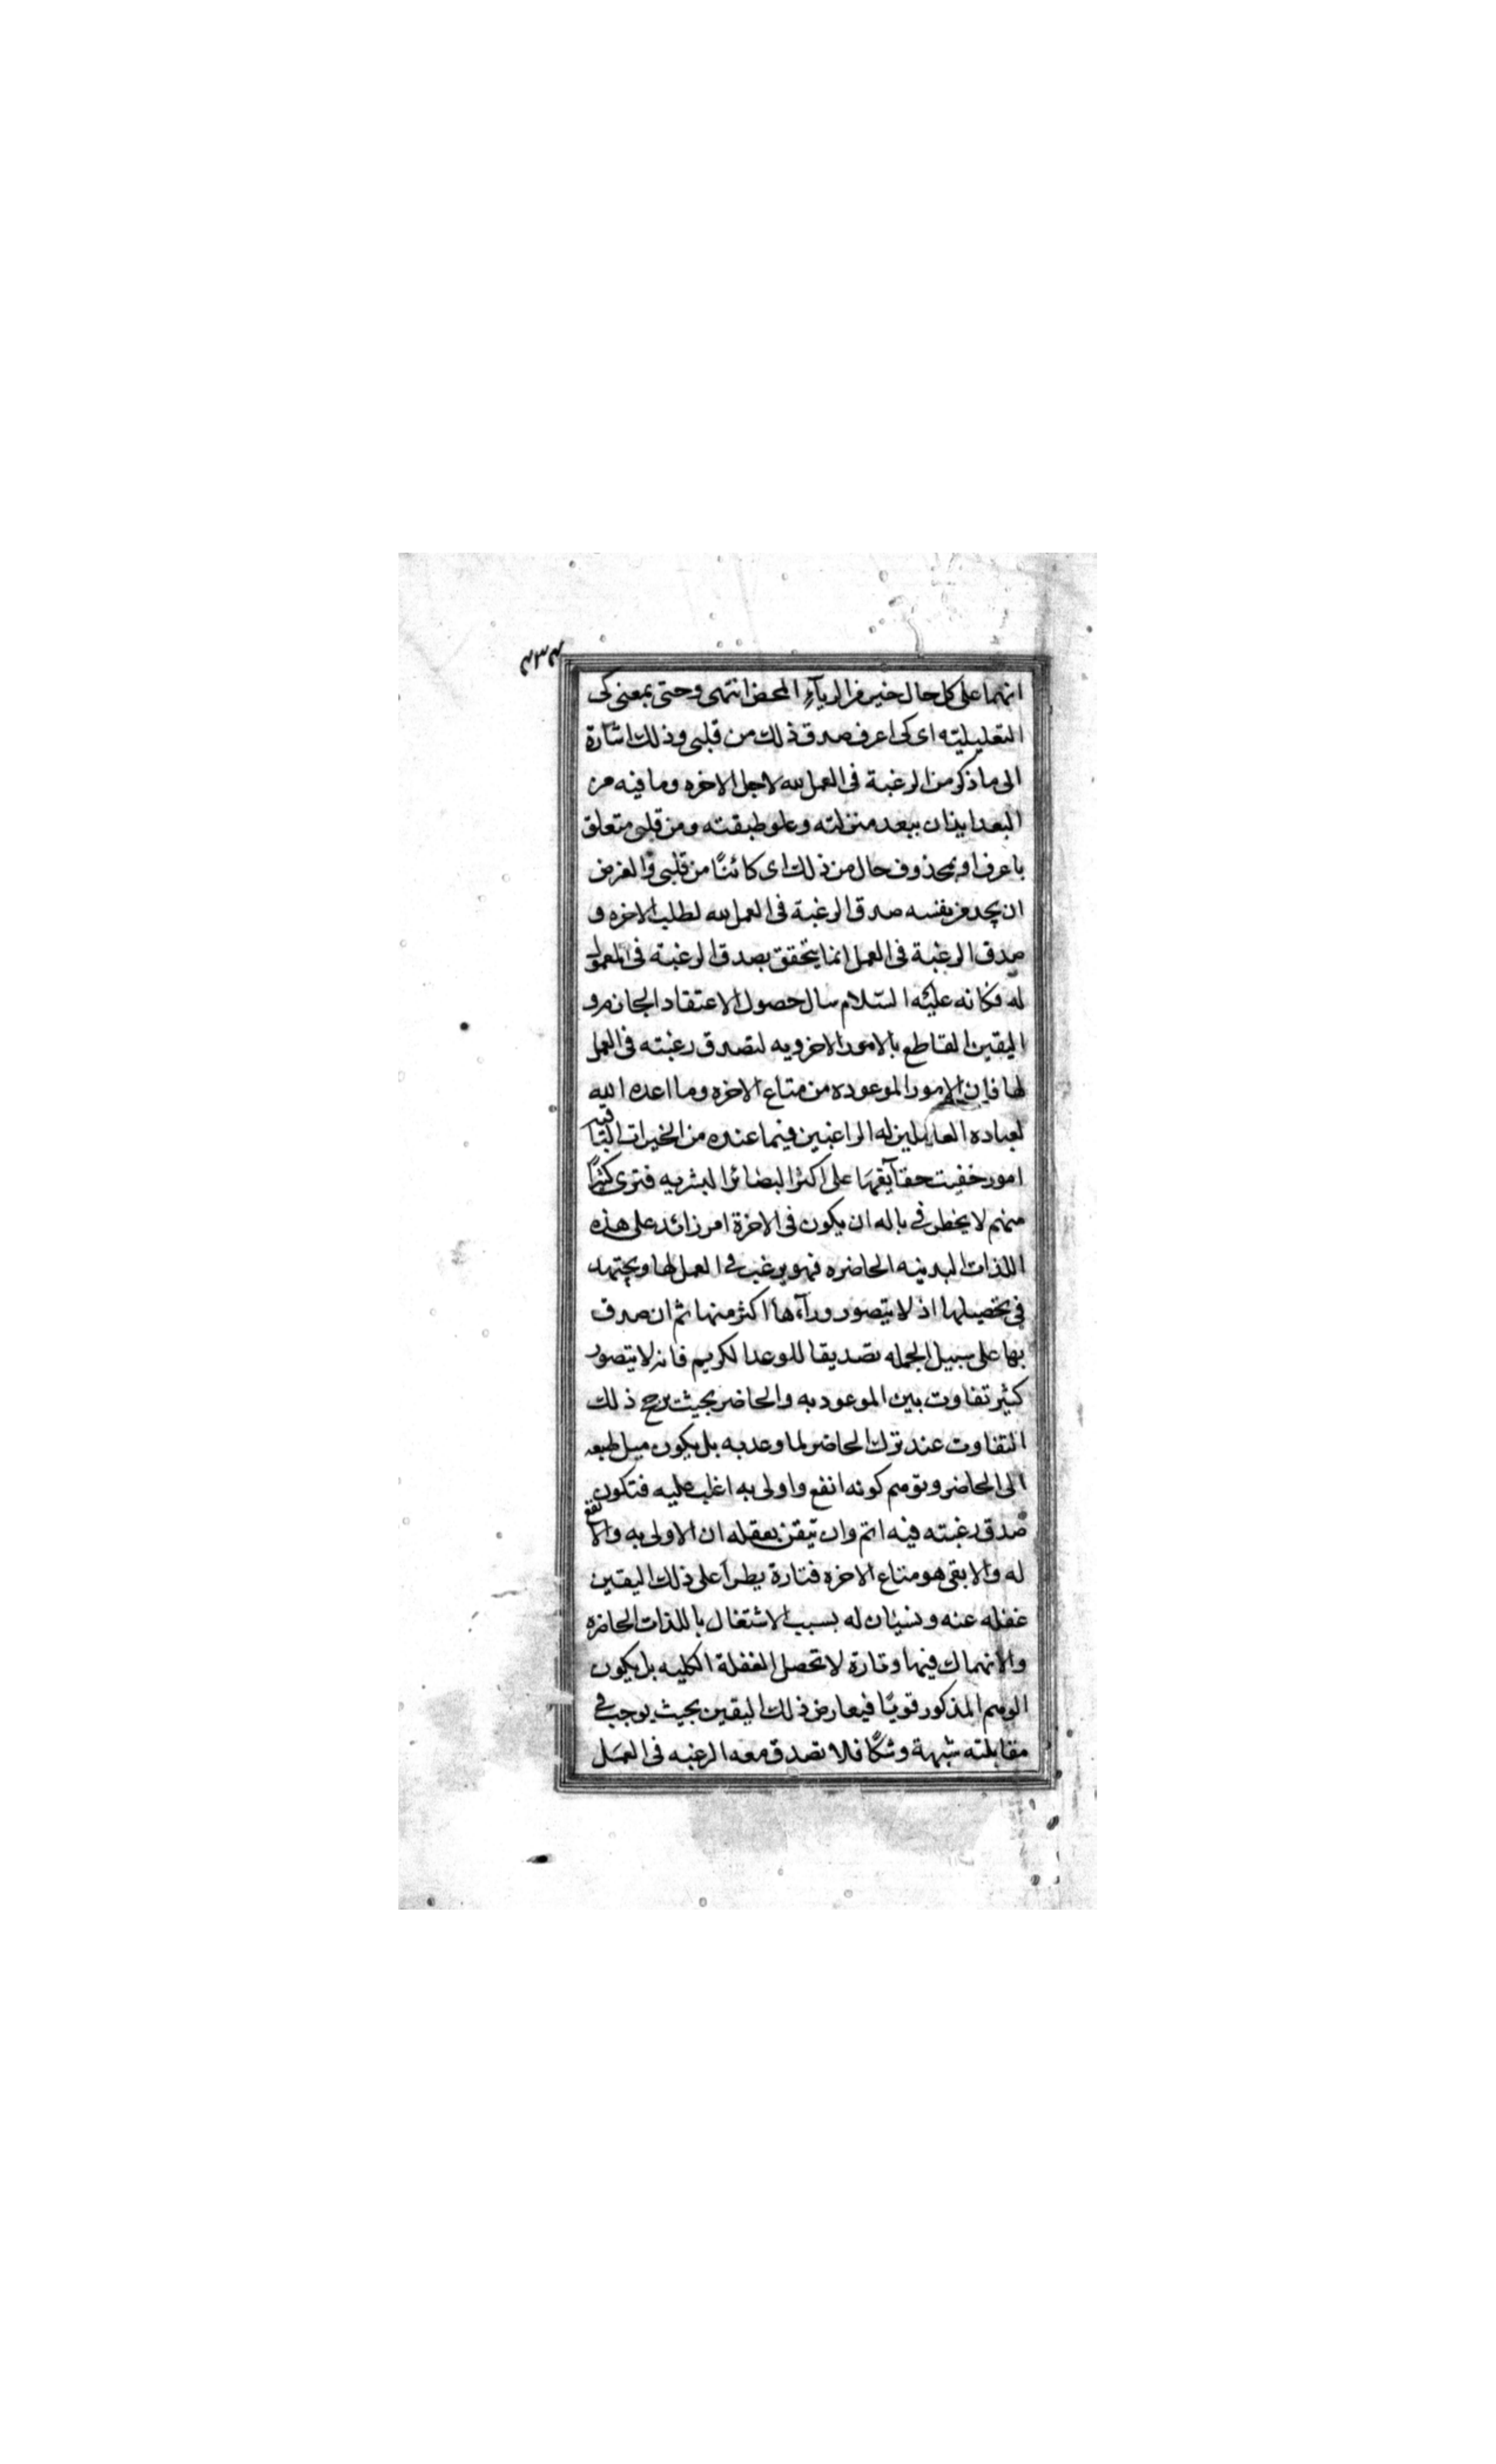 ۴۳۴
انهما على كل حال خير من الرياء المحض انتهى وحتى بمعنى كى
التعليليته اى كى اعرف صدق ذلك من قلبى وذلك اشارة
الى ما ذكر من الرغبة فى العمل لله لاجل الاخره وما فيه من
البعد ايذان ببعد منزلته وعلو طبقته ومن قلبى متعلق
باعرف او بمحذوف حال من ذلك اى كائنًا من قلبى والغرض
ان يجد من نفسه صدق الرغبة فى العمل لله لطلب الاخره و
صدق الرغبة فى العمل انما يتحقق بصدق الرغبته فى المعمول
له فكانه عليه السّلام سال حصول الاعتقاد الجازم و
اليقين القاطع بالامور الاخرويه لتصدق رغبته فى العمل
لها فان الامور الموعوده من متاع الاخره وما اعده الله
لعباده العاملين له الراغبين فيما عنده من الخيرات الباقيه
امور خفيت حقآيقها على اكثر البصائر البشريه فترى كثيرًا
منهم لا يخطر في باله ان يكون فى الاخرة امر زائد على هذه
اللذات البدنيه الحاضره فهو يرغب فى العمل لها ويجتهد
فى تحصيلها اذ لا يتصور ورآءها اكثر منها ثم ان صدق
بها على سبيل الجمله تصديقا للوعد الكريم فانه لا يتصور
كثير تفاوت بين الموعود به والحاضر بحيث يرجح ذلك
التفاوت عند ترك الحاضر لما وعد به بل يكون ميل طبعه
الى الحاضر وتوهم كونه انفع واولى به اغلب عليه فتكون
صدق رغبته فيه اتم وان تيقن بعقله ان الاولى به والانفع
له والابقى هو متاع الاخره فتارة يطرا على ذلك اليقين
غفله عنه ونسيان له بسبب الاشتغال باللذات الحاضره
والانهماك فيها وتارة لا تحصل الغفلة الكليه بل يكون
الوهم المذكور قويًا فيعارض ذلك اليقين بحيث يوجب فى
مقابلته شبهة وشكًا فلا تصدق معه الرغبه فى العمل